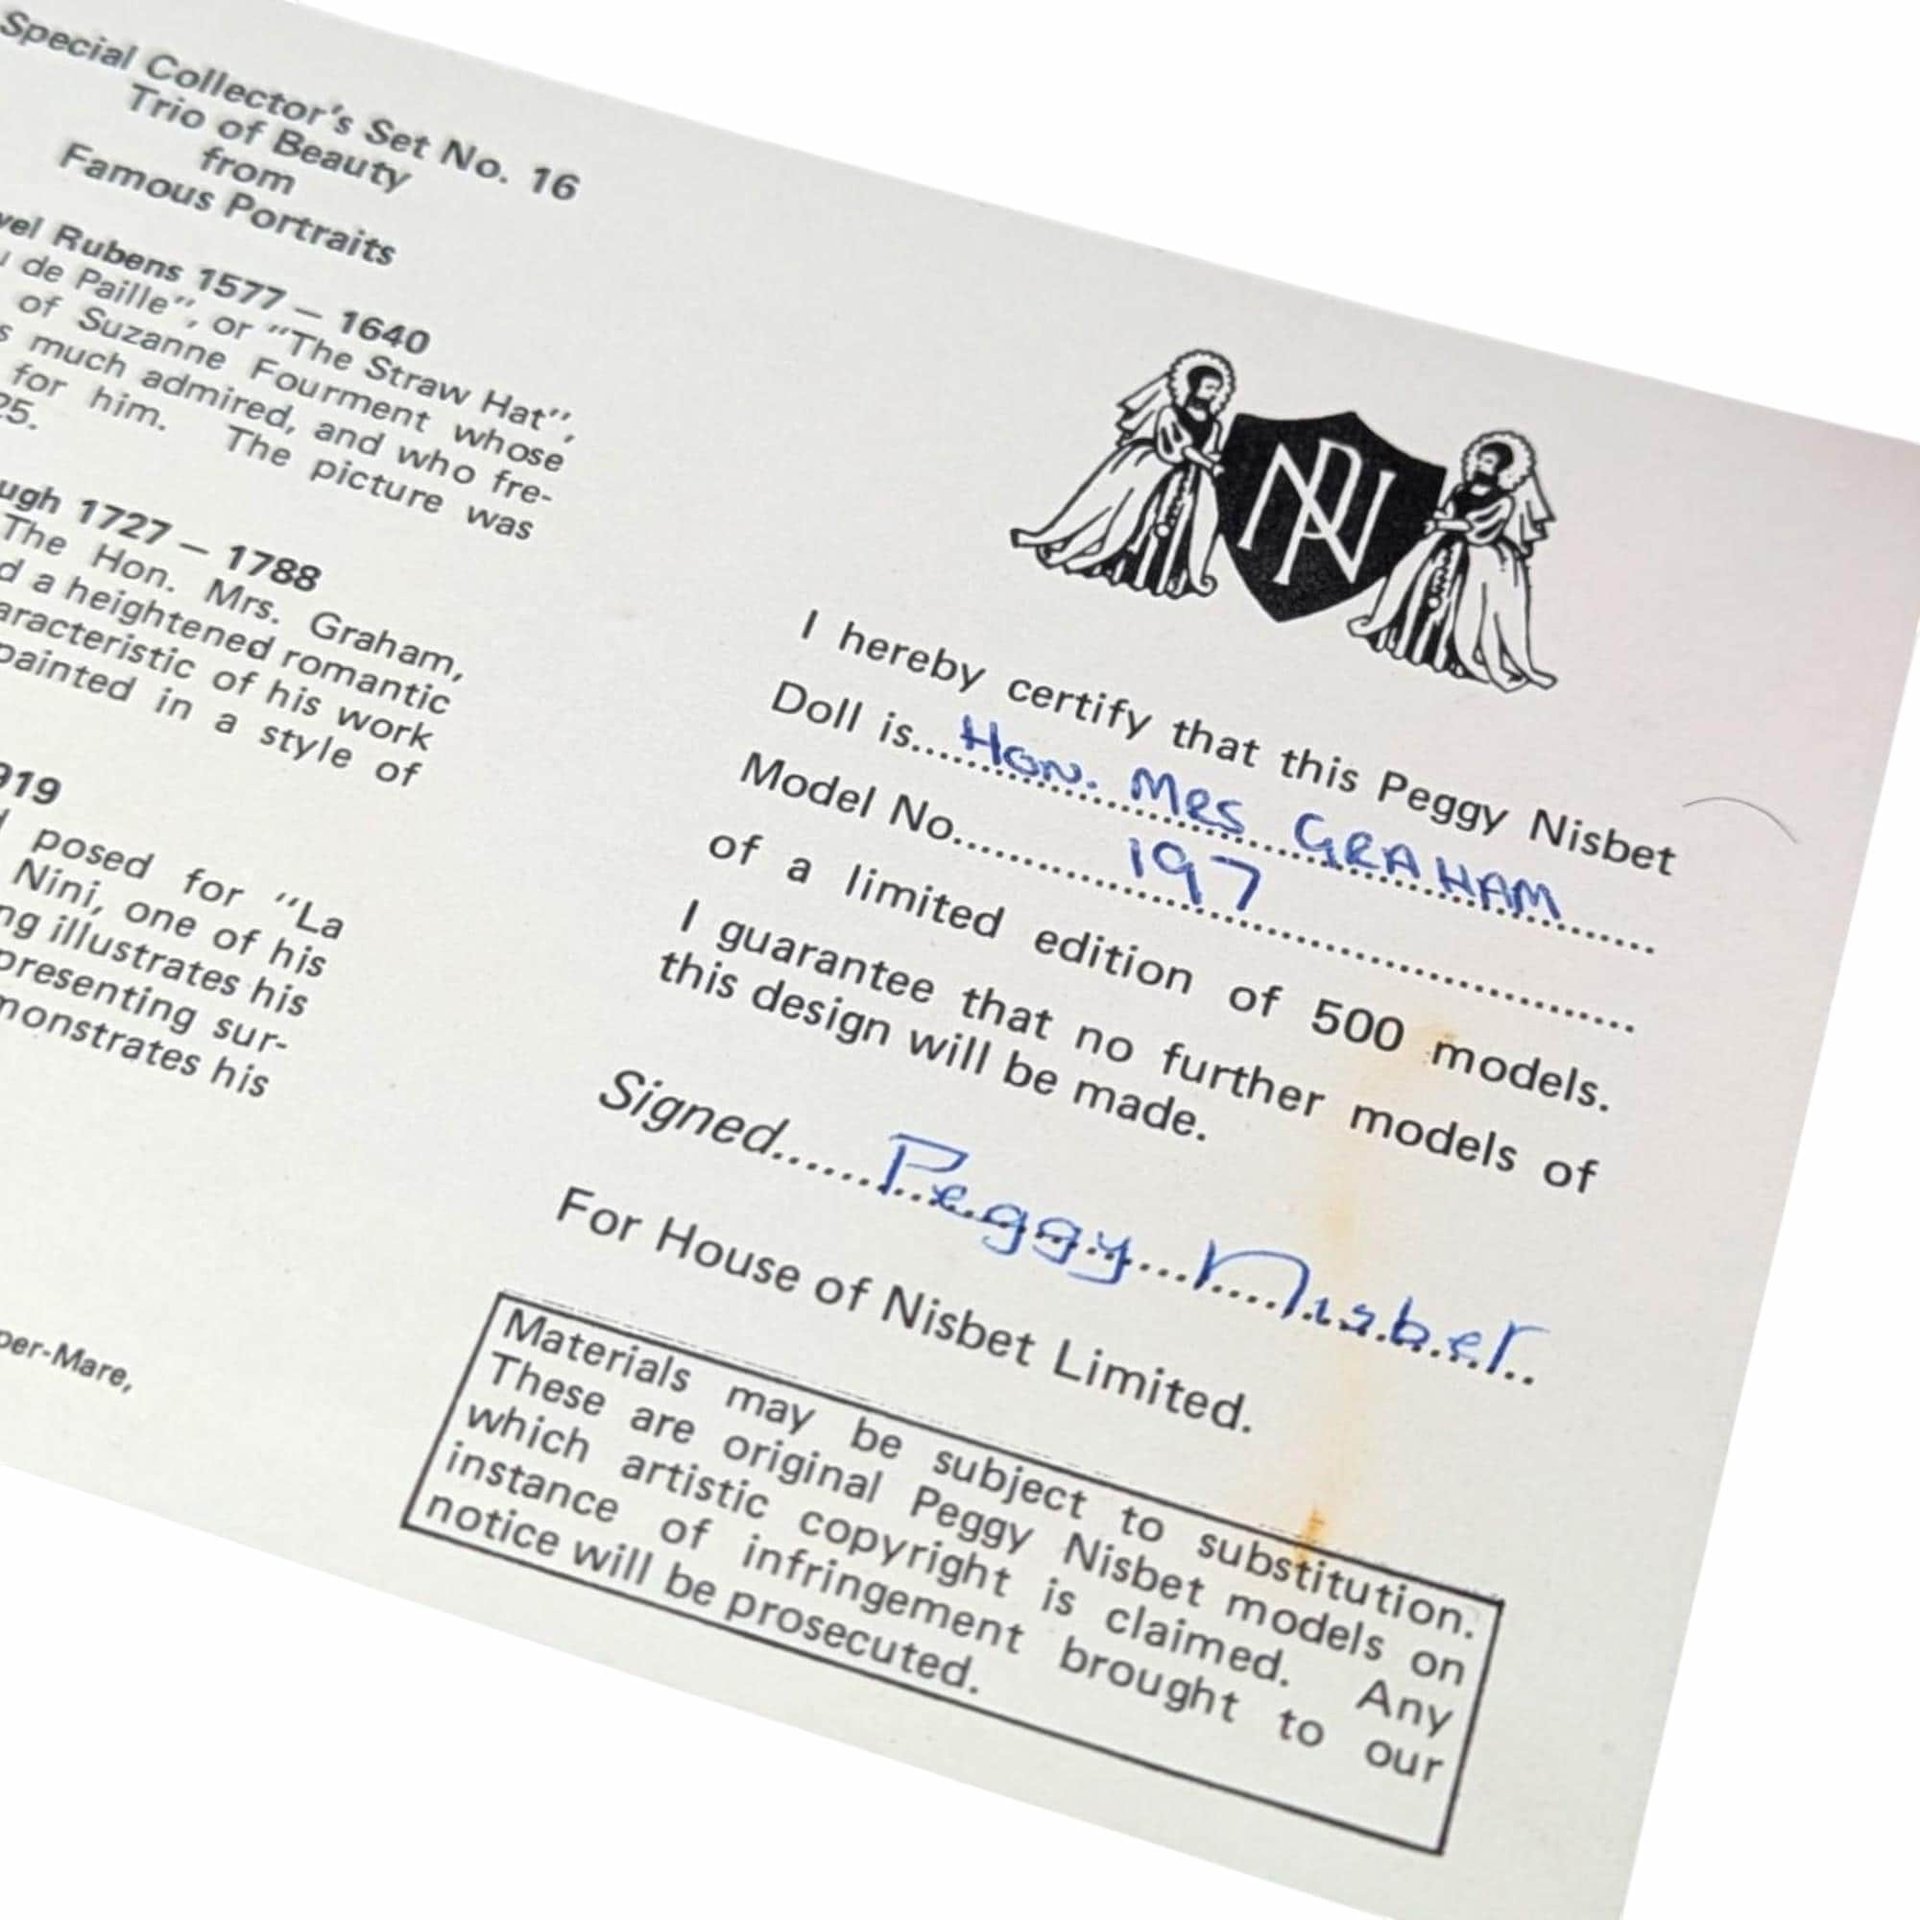 Special Collector's Set No. 16
Trio of Beauty
from
Famous Portraits
Rubens 1577 – 1640
de Paille", or "The Straw Hat",
of Suzanne Fourment whose
much admired, and who fre-
for him. The picture was
25.
1727 – 1788
The Hon. Mrs. Graham,
a heightened romantic
of his work
painted in a style of
919
posed for "La
Nini, one of his
illustrates his
sur-
his
per-Mare,
PN
I hereby certify that this Peggy Nisbet
Doll is...Hon. Mrs GRAHAM
Model No. 197
of a limited edition of 500 models.
I guarantee that no further models of
this design will be made.
Signed Peggy Nisbet
For House of Nisbet Limited.
Materials may be subject to substitution.
These are original Peggy Nisbet models on
which artistic copyright is claimed. Any
instance of infringement brought to our
notice will be prosecuted.